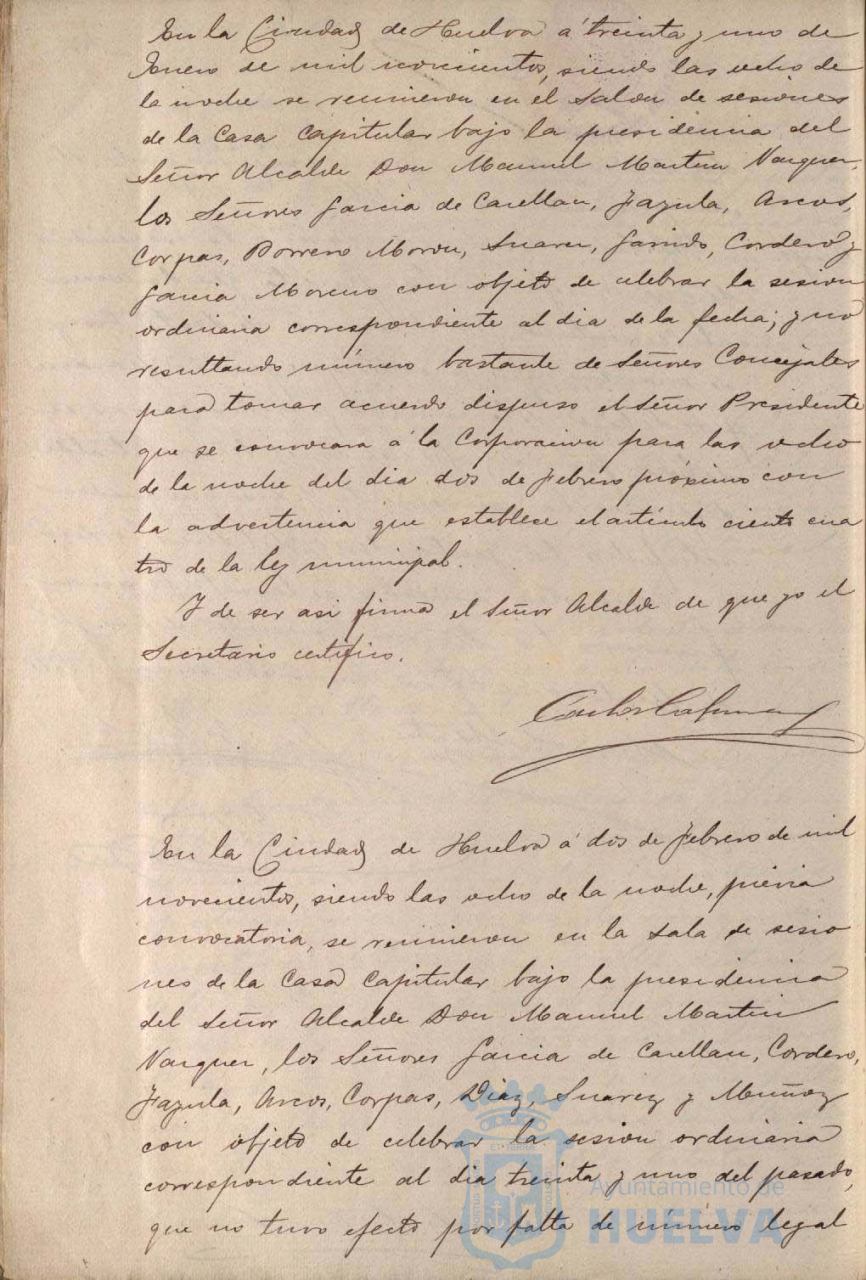 En la Ciudad de Huelva á treinta y uno de
Enero de mil novecientos, siendo las ocho de
la noche se reunieron en el Salon de sesiones
de la Casa Capitular bajo la presidencia del
Señor Alcalde Don Manuel Martin Vazquez,
los Señores Garcia de Casellan, Jazula, Arcos,
Corpas, Borrero Moron, Suarez, Garrido, Cordero y
Garcia Moreno con objeto de celebrar la sesion
ordinaria correspondiente al dia de la fecha; y no
resultando número bastante de Señores Concejales
para tomar acuerdo dispuso el Señor Presidente
que se convocara á la Corporacion para las ocho
de la noche del dia dos de Febrero próximo con
la advertencia que establece el artículo ciento cua
tro de la ley municipal.
Y de ser asi firma el Señor Alcalde de que yo el
Secretario certifico.
En la Ciudad de Huelva á dos de Febrero de mil
novecientos, siendo las ocho de la noche, prévia
convocatoria, se reunieron en la Sala de sesio
nes de la Casa Capitular bajo la presidencia
del Señor Alcalde Don Manuel Martin
Vazquez, los Señores Garcia de Casellan, Cordero,
Jazula, Arcos, Corpas, Diaz, Suarez y Muñoz
con objeto de celebrar la sesion ordinaria
correspondiente al dia treinta y uno del pasado,
que no tuvo efecto por falta de número legal
Ayuntamiento de
HUELVA